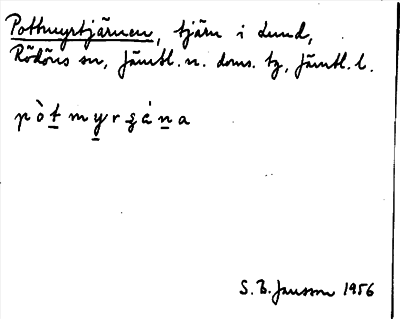 Pottmyrtjärnen, tjärn i Lund,
Rödöns sn, Jämtl. n. doms. tg, Jämtl. l.
pòt myrʂána
S. B. Jansson 1956